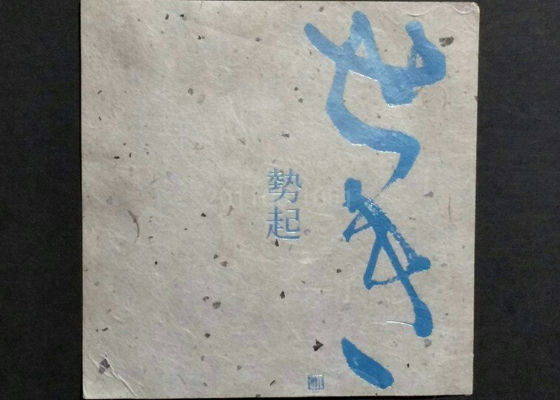 せき
勢起